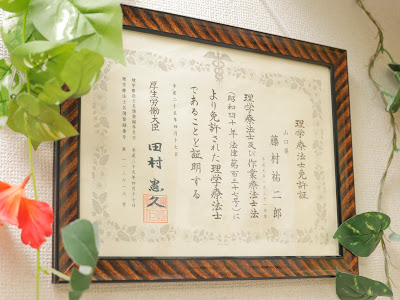 理学療法士免許証
山口県
藤村祐二郎
理学療法士及び作業療法士法
(昭和四十年法律第百三十七号)に
より免許された理学療法士
であることを証明する
平成二十五年四月十七日
厚生労働大臣 田村憲久